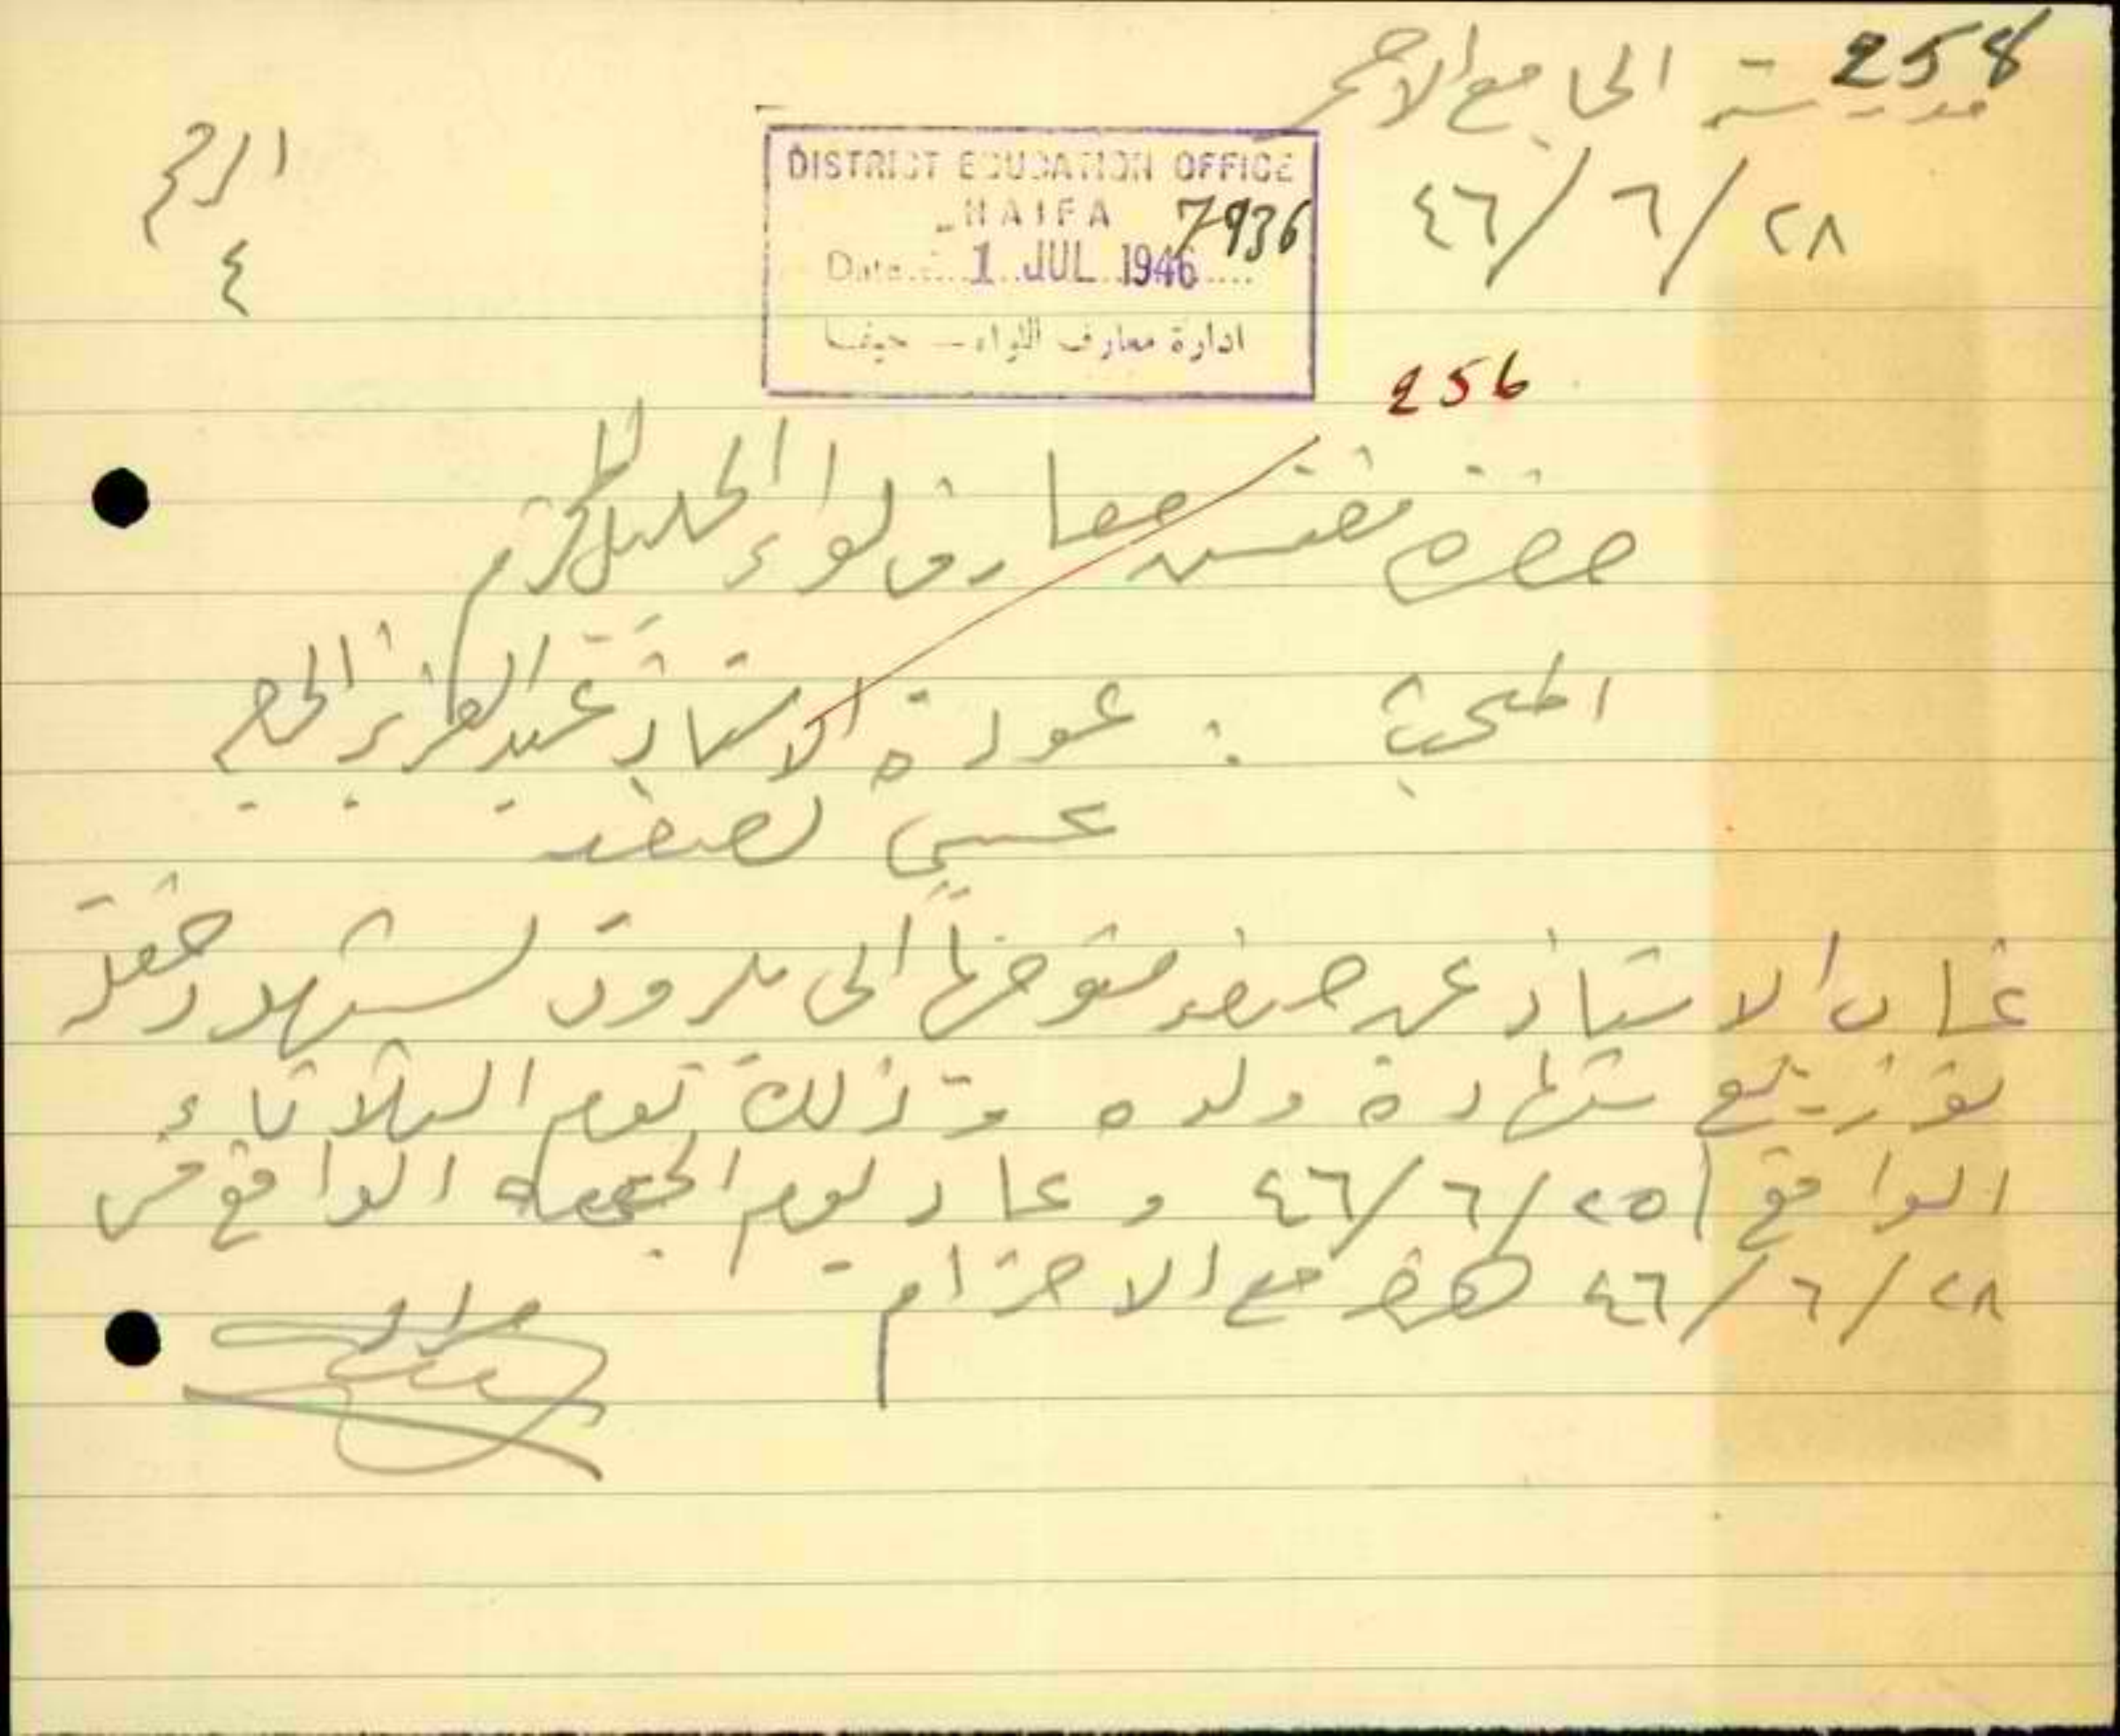 258
مدرسة الجامع الاحمر
٢٨/٦/٤٦
الرقم
٤
DISTRICT EDUCATION OFFICE
HAIFA
7936
Date 1 JUL 1946
ادارة معارف اللواء — حيفا
256
حضرة مفتش معارف لواء الجليل المحترم
المبحث : عودة الاستاذ عبد العزيز الحاج
عيسى لصفه
غاب الاستاذ عن صفه متوجهاً الى بيروت ليشهد حفلة
توزيع شهادة ولده وذلك يوم الثلاثاء
الواقع ٢٥/٦/٤٦ وعاد يوم الجمعه الواقع في
٢٨/٦/٤٦ هذا مع الاحترام